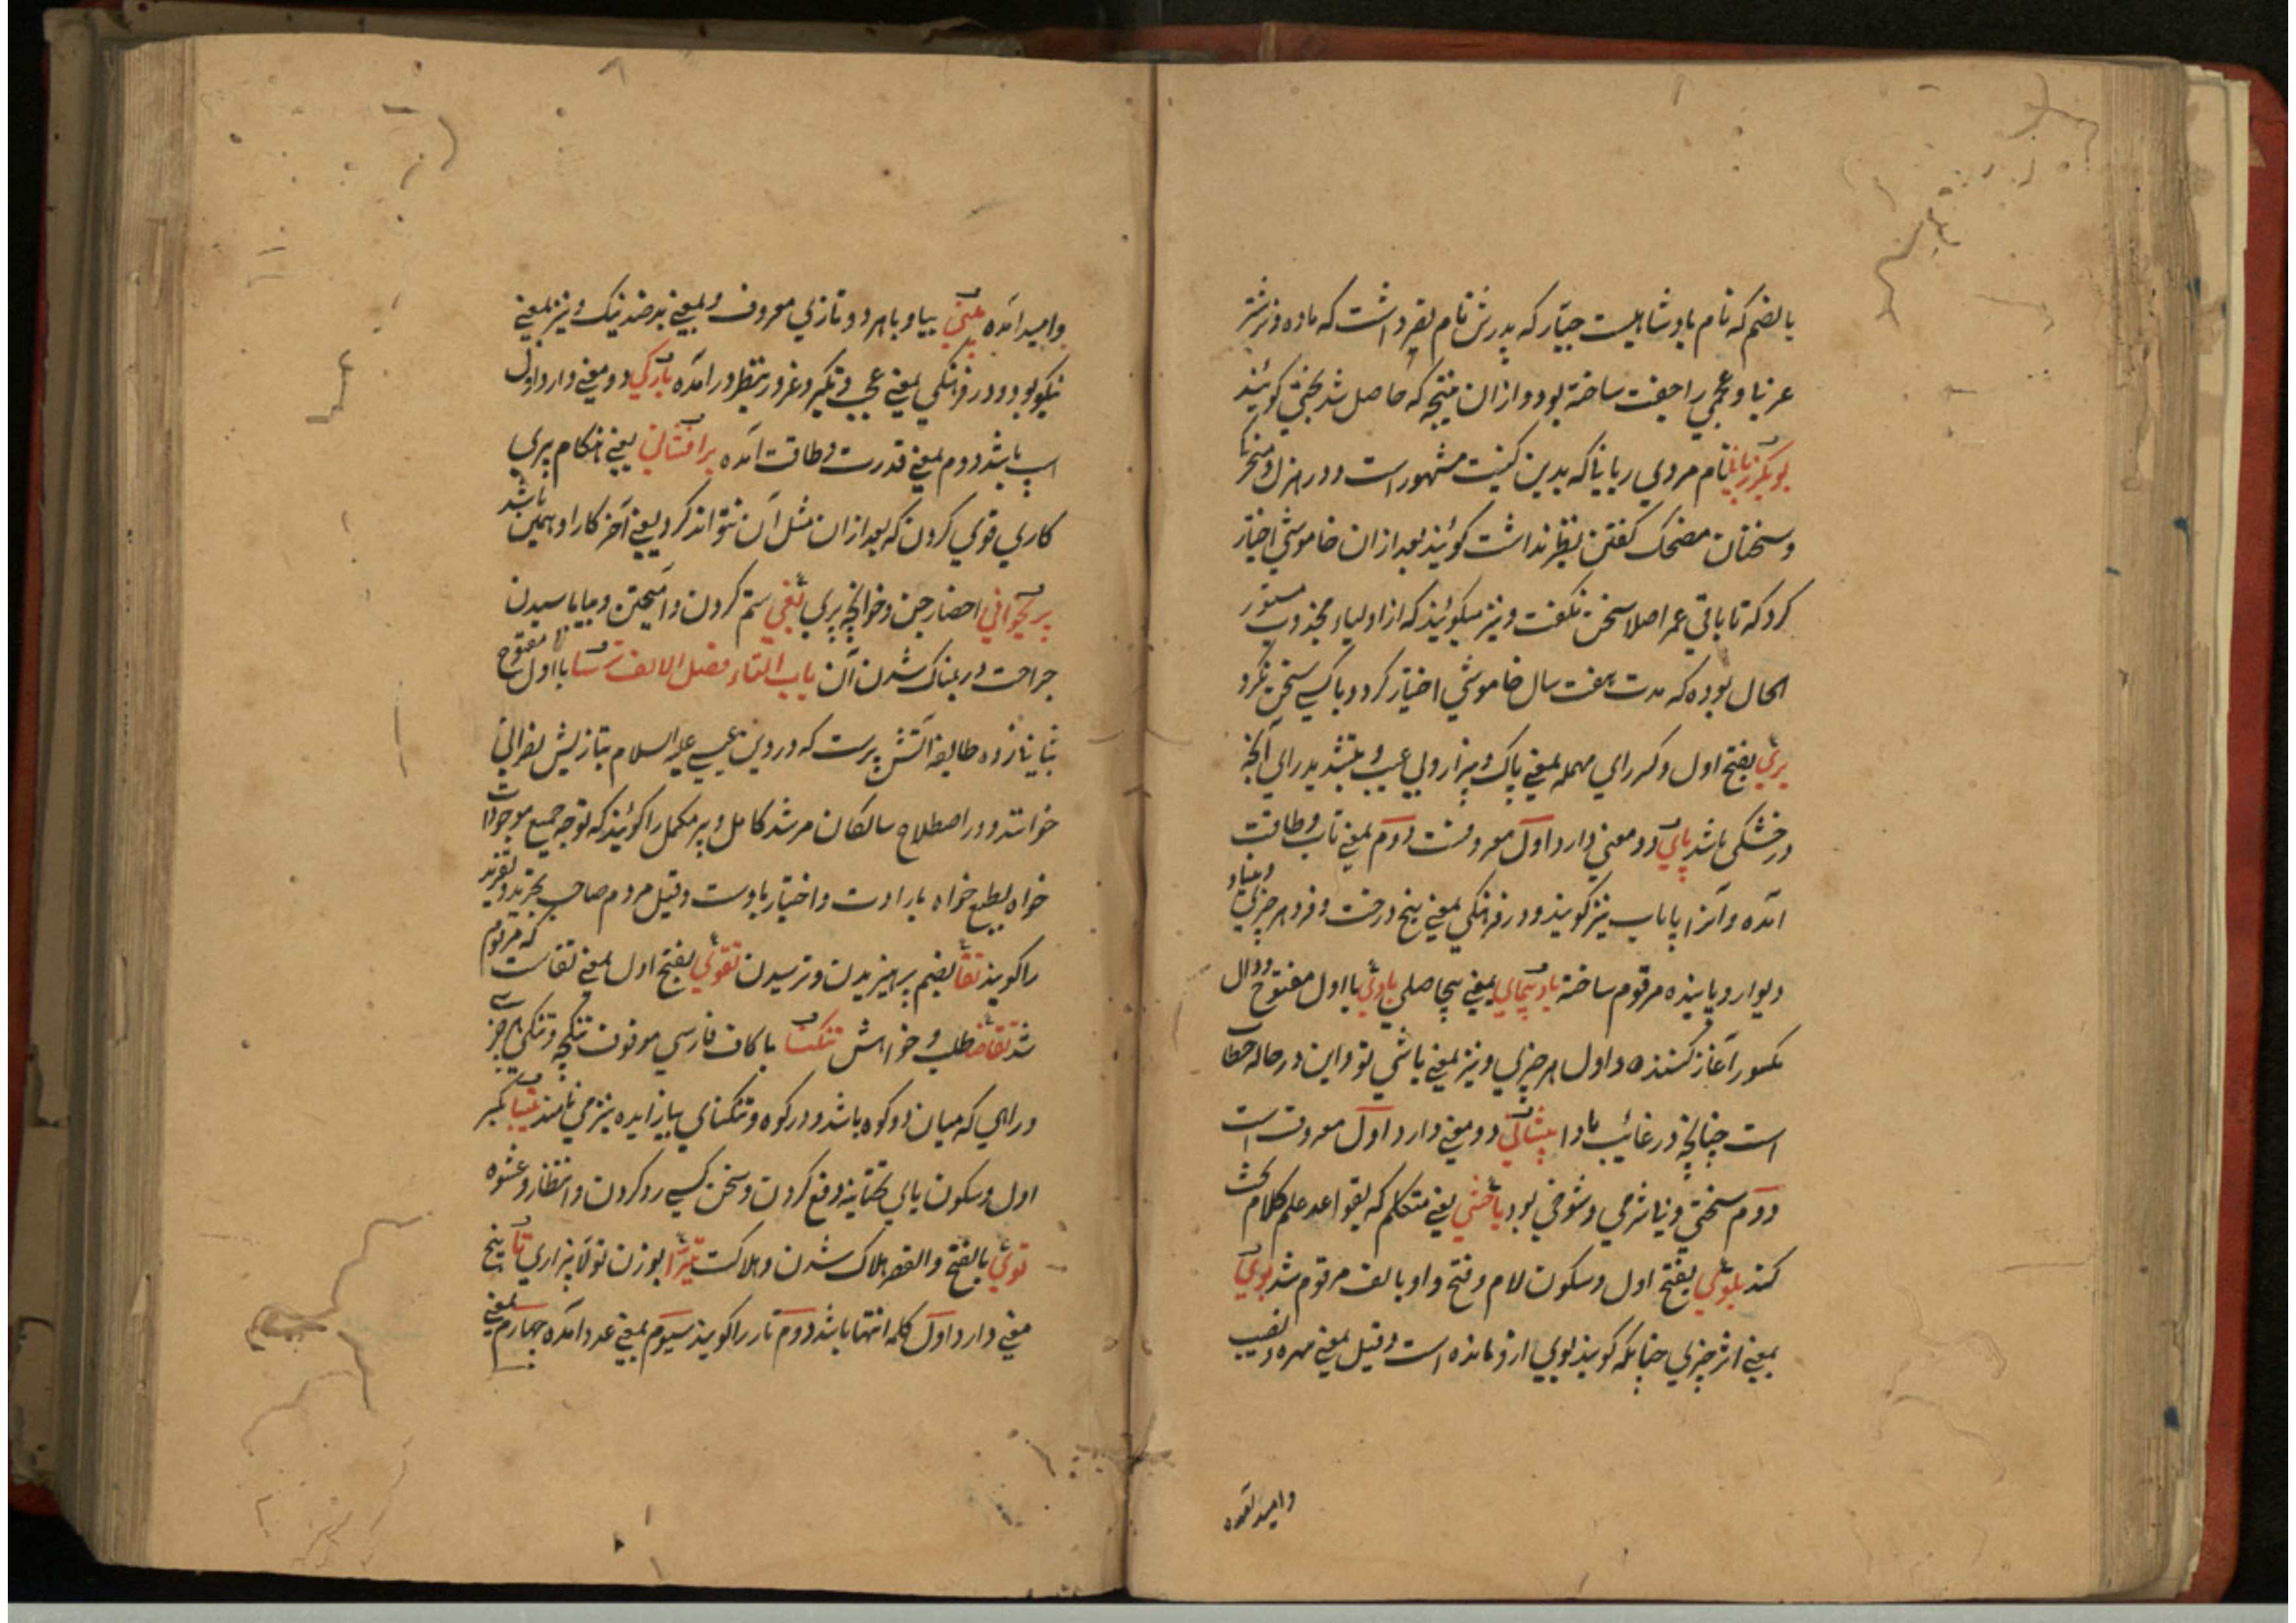 بالضم که نام بادشاهیست جبّار که پدرش نام داشت که ماده و نر شتر
عربا و عجمی را جفت ساخته بود و ازان نتیجه که حاصل شد بختی گویند
نام مردی ربابا که بدین کنیت مشهور است و در هزل و مسخرگی
و سخنان مضحک گفتن نظیر نداشت گویند بعد ازان خاموشی اختیار
کرد که تا باقی عمر اصلا سخن نگفت و نیز میگویند که از اولیاء مجذوب مستور
الحال بوده که مدت هفت سال خاموشی اختیار کرد و با کسی سخن نکرد
بری بفتح اول و کسر رای مهمله بمعنی پاک و بیزار و بی عیب و بتشدید رای آنچه
در خشکی باشد پای دو معنی دارد اول معروفست دوم بمعنی تاب و طاقت
آمده و آنرا پایاب نیز گویند و در فرهنگی بمعنی بیخ درخت و فرود هر چیزی و بنیاد
دیوار و پاینده مرقوم ساخته بادپیمای بمعنی بیحاصلی بادی با اول مفتوح و دال
مکسور آغاز کننده و اول هر چیزی و نیز بمعنی باشی تو و این در حالت خطاب
است چنانچه در غائب بادا پیشانی دو معنی دارد اول معروفست
دوم سختی و بیشرمی و شوخی بود باحثی یعنی متکلم که بقواعد علم کلام بحث
کند بلوی بفتح اول و سکون لام و فتح واو بالف مرقوم شد بوی
بمعنی اثر چیزی چنانکه گویند بوی ازو مانده است و قیل بمعنی بهره و نصیب
و امید آمده
و امید آمده بیا و با هر دو تازی معروف و بمعنی بد ضد نیک و نیز بمعنی
نیکو بود و در فرهنگی بمعنی عجب و تکبر و غرور بنظر در آمده بارگی دو معنی دارد اول
اسپ باشد دوم بمعنی قدرت و طاقت آمده برافشانی یعنی هنگام پیری
کاری قوی کردن که بعد ازان مثل آن نتواند کرد یعنی آخر کار او همین باشد
پریخوانی احضار جن و خوانچه پری بغی ستم کردن و
جراحت و ریمناک شدن آن باب التاء فصل الالف ترسا با اول مفتوح
طایفه آتش پرست که در دین عیسی علیه السلام بتازیش نصرانی
خوانند و در اصطلاح سالکان مرشد کامل و پیر مکمل را گویند که توجه جمیع موجودات
خواه بطبع خواه بارادت و اختیار باوست و قیل مردم صاحب تجرید و تفرید
را گویند تقا بضم پرهیزیدن و ترسیدن تقوی بفتح اول بمعنی تقاست که مرقوم
شد تقاضا طلب و خواهش تنگنا با کاف فارسی موقوف تنگی هر چیز
و راهی که میان دو کوه باشد و درکوه و تنگنای بیازایده نیز می نامند بکسر
اول و سکون یای تحتانیه دفع کردن و سخن کسی رد کردن و انتظار و عشوه
توی بالفتح و القصر هلاک شدن و هلاکت تبرّا بوزن تولّا بیزاری تا پنج
معنی دارد اول کلمه انتها باشد دوم تار را گویند سیوم بمعنی عدد آمده چهارم بمعنی